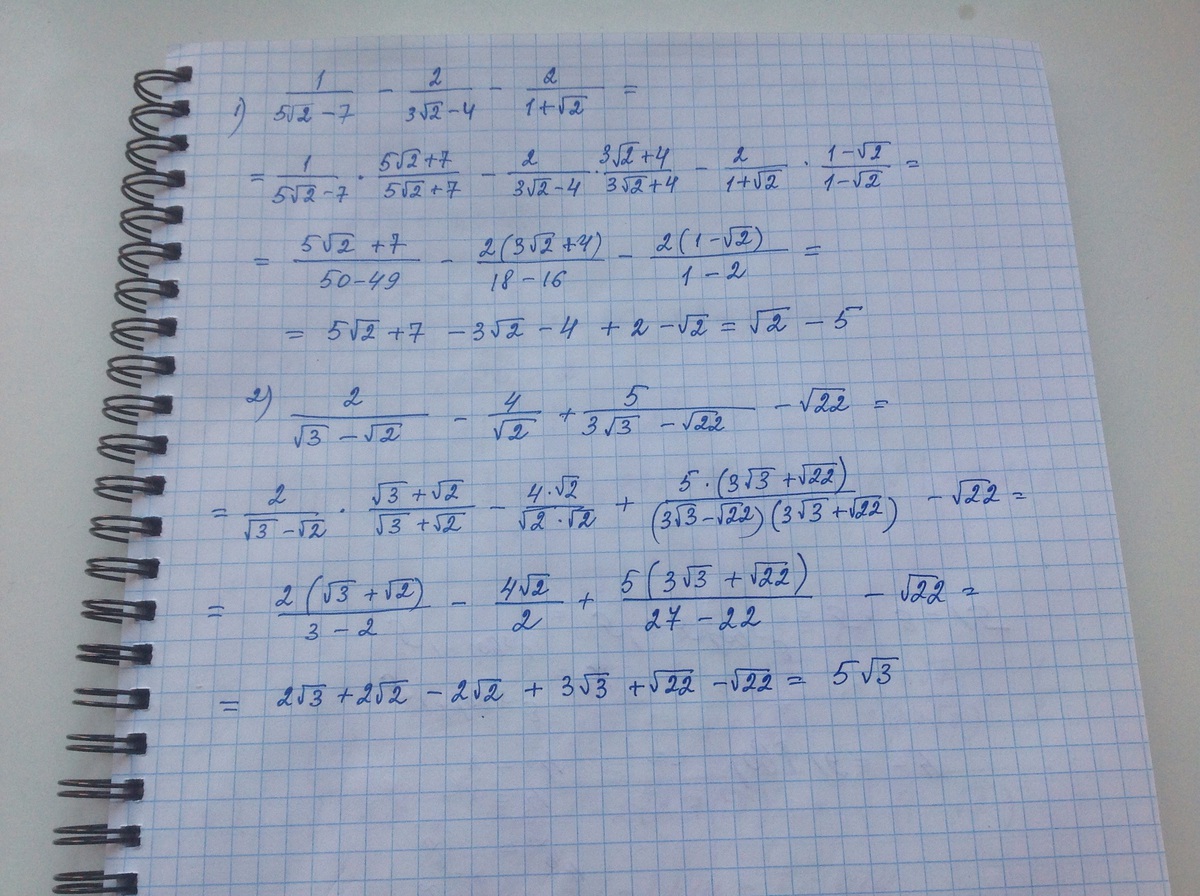 1) 1/(5√2 - 7) - 2/(3√2 - 4) - 2/(1 + √2) =
= 1/(5√2 - 7) · (5√2 + 7)/(5√2 + 7) - 2/(3√2 - 4) · (3√2 + 4)/(3√2 + 4) - 2/(1 + √2) · (1 - √2)/(1 - √2) =
= (5√2 + 7)/(50 - 49) - 2(3√2 + 4)/(18 - 16) - 2(1 - √2)/(1 - 2) =
= 5√2 + 7 - 3√2 - 4 + 2 - √2 = √2 - 5
2) 2/(√3 - √2) - 4/√2 + 5/(3√3 - √22) - √22 =
= 2/(√3 - √2) · (√3 + √2)/(√3 + √2) - 4·√2/(√2·√2) + 5·(3√3 + √22)/((3√3 - √22)(3√3 + √22)) - √22 =
= 2(√3 + √2)/(3 - 2) - 4√2/2 + 5(3√3 + √22)/(27 - 22) - √22 =
= 2√3 + 2√2 - 2√2 + 3√3 + √22 - √22 = 5√3